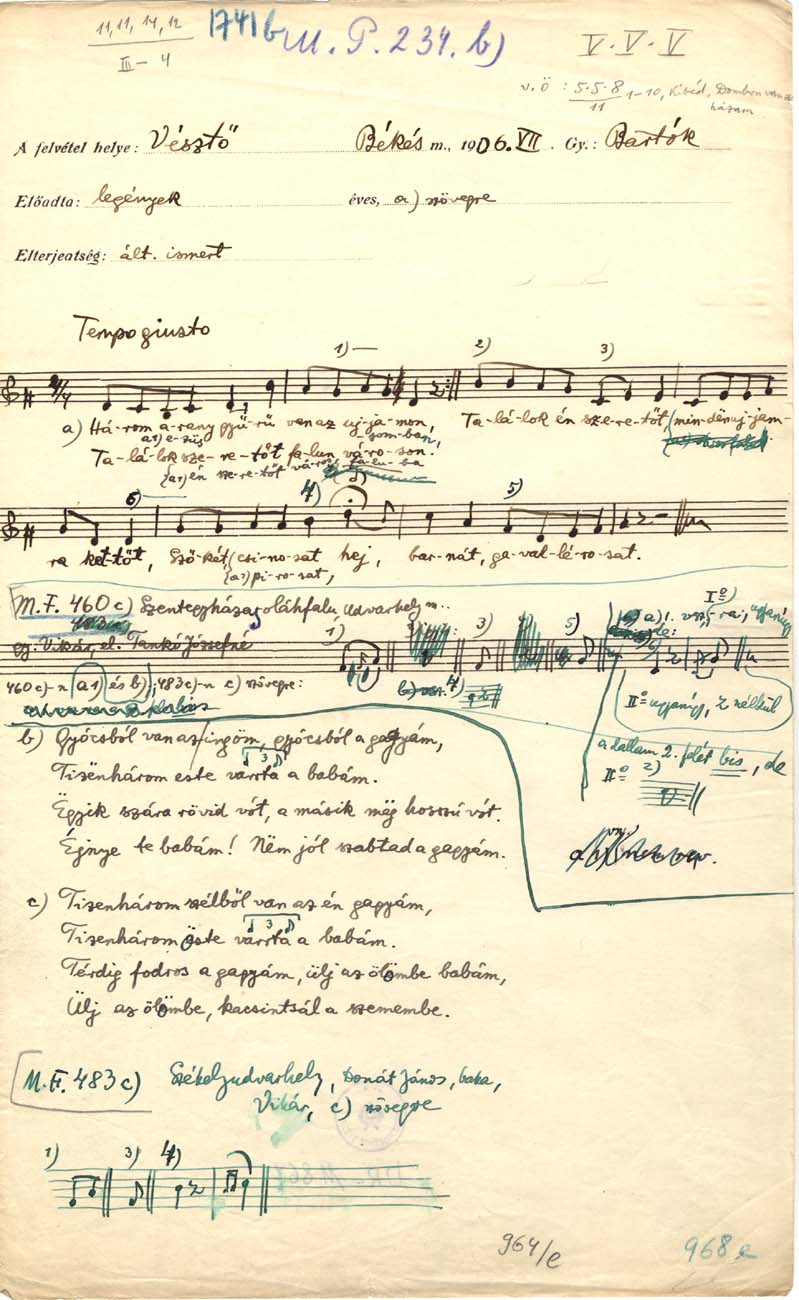 11, 11, 14, 12
III – 4
1741b
M. P. 234. b)
V · V · V
v. ö : 5·5·8 1–10, Kibéd, Dombon van a házam
11
A felvétel helye: Vésztő Békés m., 1906. VII. Gy.: Bartók
Előadta: legények éves, a) szövegre
Elterjeatség: ált. ismert
Tempo giusto
1) 2) 3)
a) Há-rom a-rany gyü-rü van az uj-ja-mon, Ta-lá-lok én sze-re-tőt (min-dën uj-jam-
Ta-lá-lok sze-re-tőt fa-lun vá-ro-son.
6) 4) 5)
ra ket-tőt, Sző-két (csi-no-sat hej, bar-nát, ga-val-lé-ro-sat.
(a1) pi-ro-sat,
M. F. 460 c) Szentegyházasoláhfalu, Udvarhely m.
gy. Vikár, el. Tankó Józsefné
1) 3) 5)
460 c)-n a1) és b) ; 483c)-n c) szövegre:
IIº ugyanígy, z nélkül
a dallam 2. felét bis, de
IIº z)
b) Gyócsból van az ingöm, gyócsból a gagyám,
Tizënhárom este varrta a babám.
Ëgyik szára rövid vót, a másik mëg hosszú vót.
Éjnye te babám! Nëm jól szabtad a gagyám.
c) Tizenhárom szélből van az én gagyám,
Tizenhárom öste varrta a babám.
Térdig fodros a gagyám, ülj az ölömbe babám,
Ülj az ölömbe, kacsintsál a szemembe.
M. F. 483 c) Székelyudvarhely, Donát János, baka,
Vikár, c) szövegre
1) 3) 4)
964/e
968 e